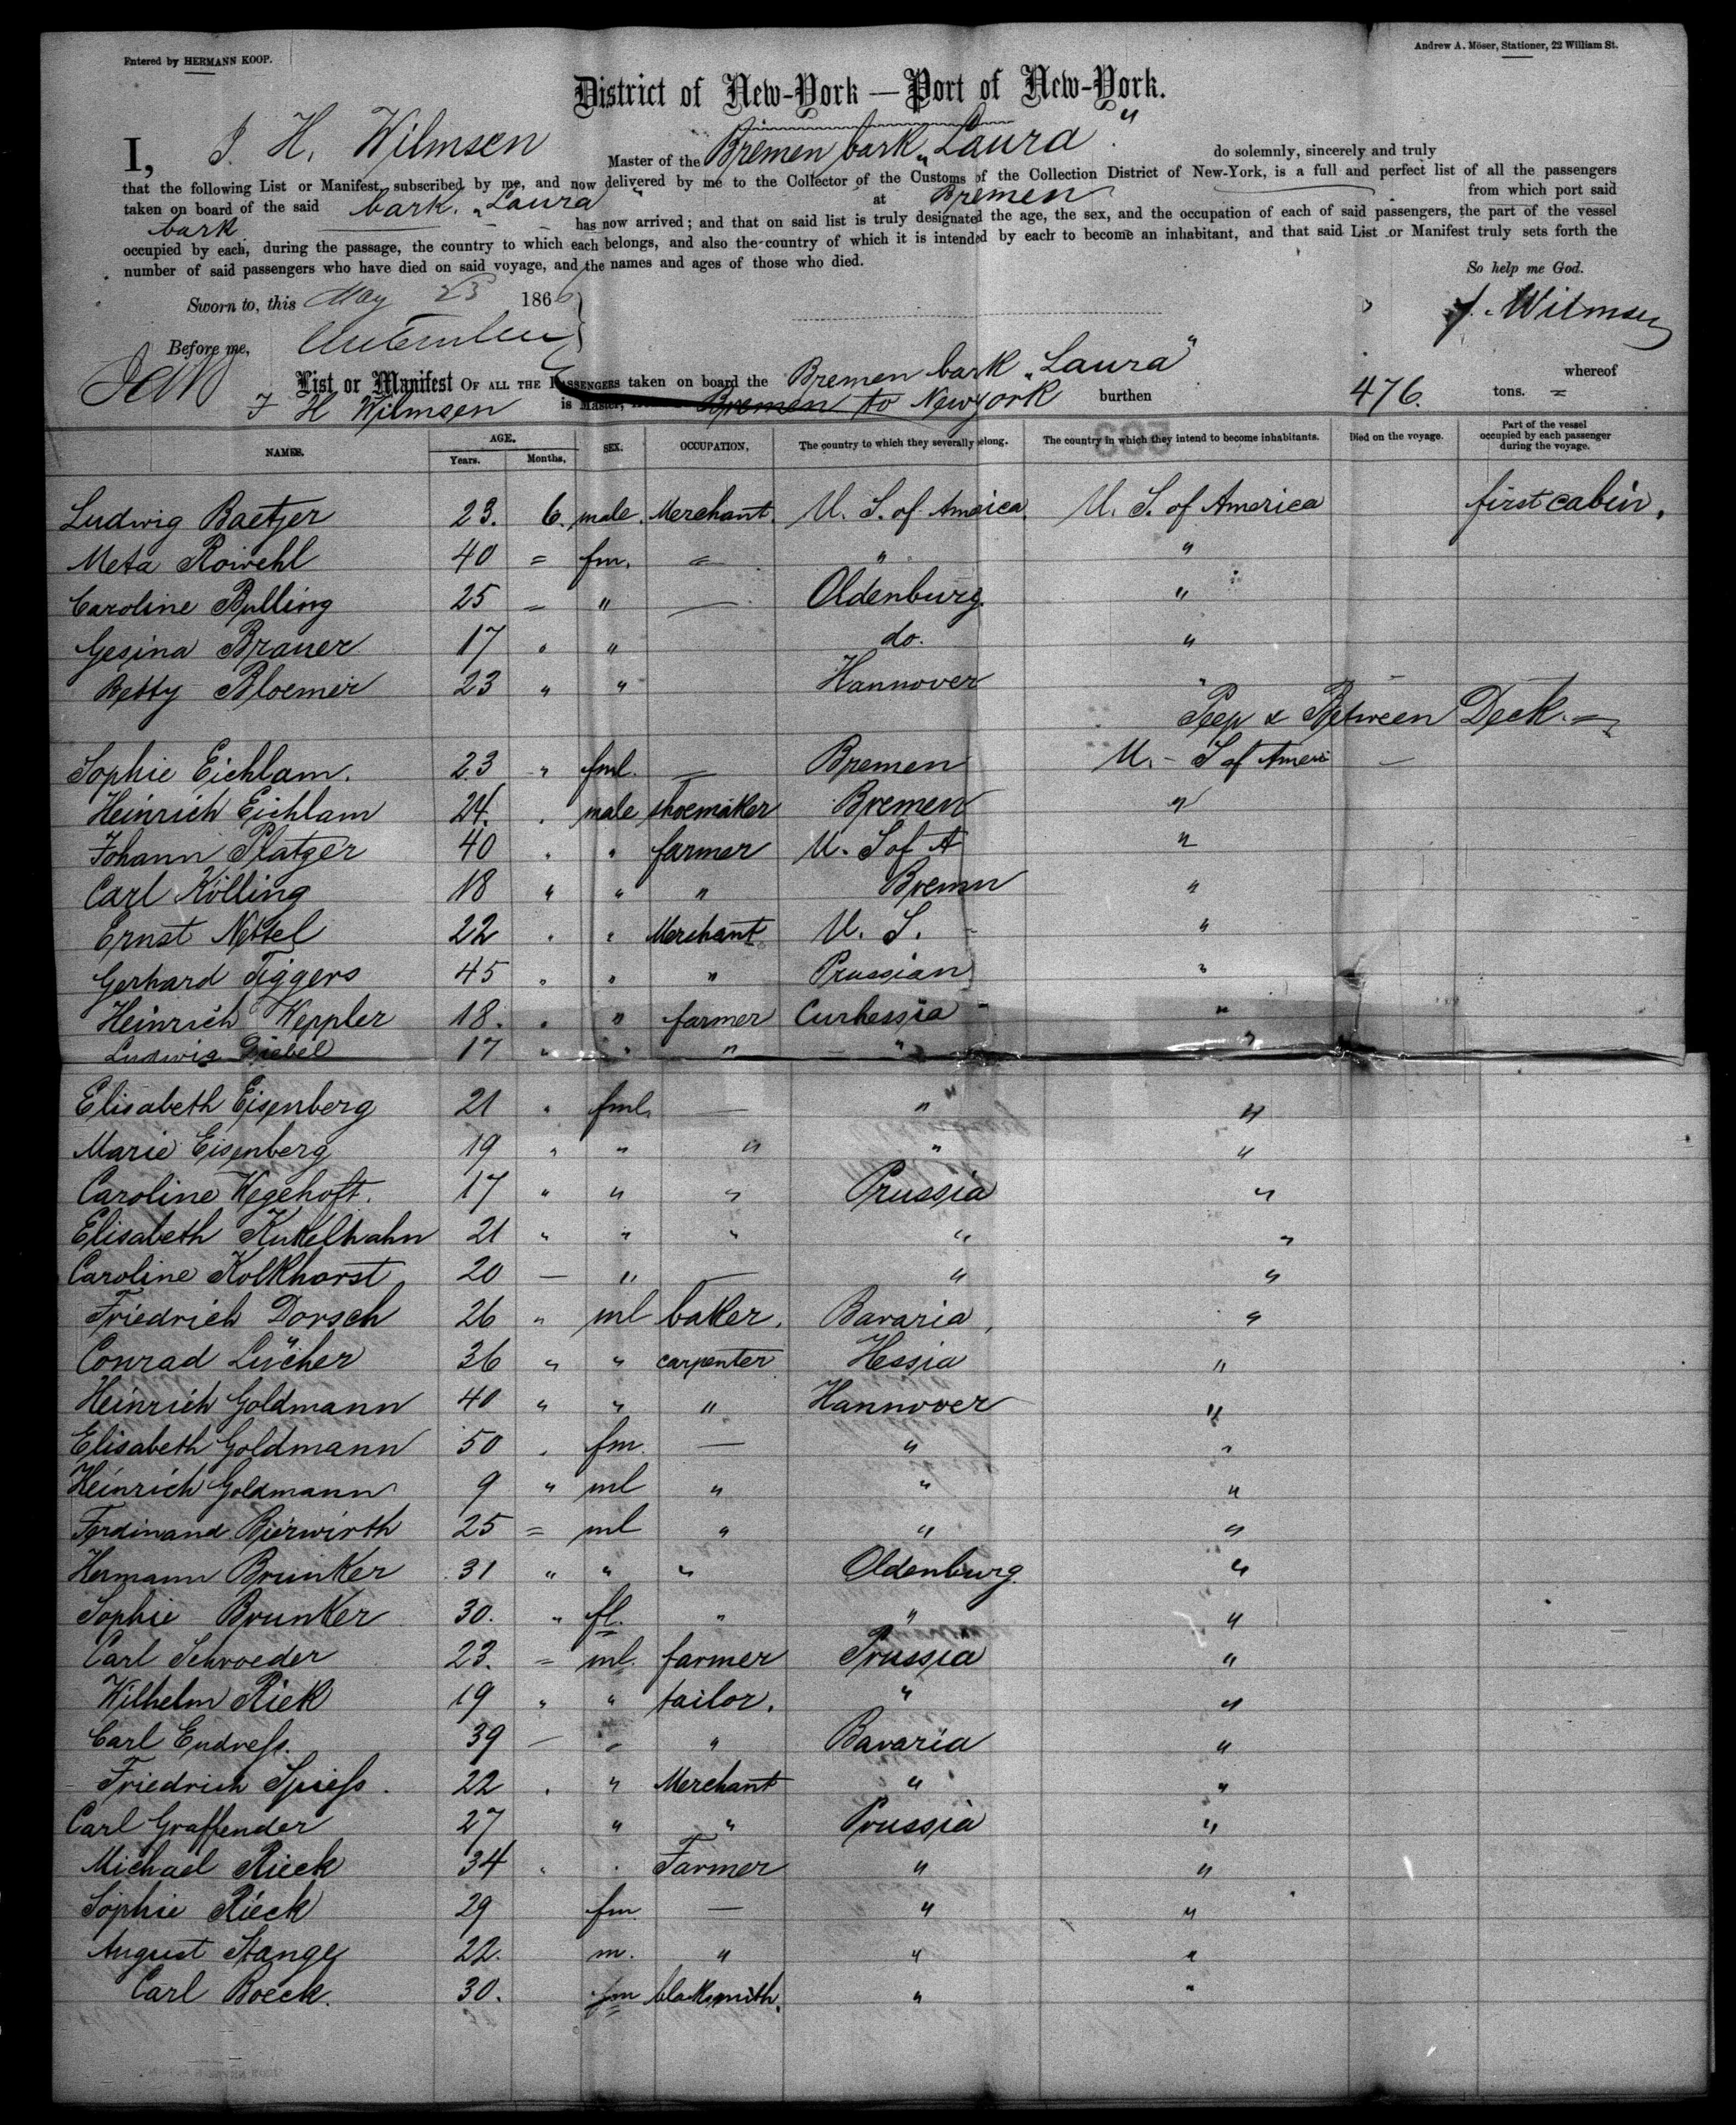 Entered by HERMANN KOOP.
Andrew A. Möser, Stationer, 22 William St.
District of New-York — Port of New-York.
I, J. H. Wilmsen Master of the Bremen bark „Laura" do solemnly, sincerely and truly
that the following List or Manifest, subscribed by me, and now delivered by me to the Collector of the Customs of the Collection District of New-York, is a full and perfect list of all the passengers
taken on board of the said bark. „Laura" at Bremen from which port said
bark has now arrived; and that on said list is truly designated the age, the sex, and the occupation of each of said passengers, the part of the vessel
occupied by each, during the passage, the country to which each belongs, and also the country of which it is intended by each to become an inhabitant, and that said List or Manifest truly sets forth the
number of said passengers who have died on said voyage, and the names and ages of those who died.
So help me God.
Sworn to, this May 23 1866
J. Wilmsen
Before me,
List or Manifest OF ALL THE PASSENGERS taken on board the Bremen bark „Laura" whereof
J H Wilmsen is Master, Bremen to New York burthen 476. tons.
NAMES. AGE. Years. Months. SEX. OCCUPATION. The country to which they severally belong. The country in which they intend to become inhabitants. Died on the voyage. Part of the vessel occupied by each passenger during the voyage.
Ludwig Baetjer 23. 6. male. Merchant. U. S. of America. U. S. of America first cabin.
Meta Rowehl 40 = fm. = " "
Caroline Bulling 25 = " — Oldenburg. "
Gesina Brauer 17 " " do. "
Betty Bloemer 23 " " Hannover "
Peep & Between Deck.
Sophie Eichlam. 23 " fml. — Bremen U. – S of Ameri —
Heinrich Eichlam 24. " male shoemaker Bremen "
Johann Platzer 40 " " farmer U. S of A "
Carl Kölling 18 " " " Bremn "
Ernst Nettel 22 " " Merchant. U. S. "
Gerhard Tiggers 45 " " " Prussian "
Heinrich Keppler 18. " " farmer Curhessia "
Ludwig Diebel 17 " " " " "
Elisabeth Eisenberg 21 " fml. — " "
Marie Eisenberg 19 " " " " "
Caroline Wegehoft. 17 " " " Prussia "
Elisabeth Kukelhahn 21 " " " " "
Caroline Kolkhorst 20 — " — " "
Friedrich Dorsch 26 " ml baker. Bavaria. "
Conrad Lücher 36 " " carpenter Hessia "
Heinrich Goldmann 40 " " " Hannover "
Elisabeth Goldmann 50 " fm. — " "
Heinrich Goldmann 9 " ml " " "
Ferdinand Bierwirth 25 = ml " " "
Hermann Brunker 31 " " " Oldenburg. "
Sophie Brunker 30. " fl. " " "
Carl Schroeder 23. = ml. farmer Prussia "
Wilhelm Riek 19 " " tailor. " "
Carl Endreſs. 39 — " " Bavaria "
Friedrich Spieſs. 22 " " Merchant " "
Carl Graffender 27 " " Prussia "
Michael Rieck 34 " " Farmer " "
Sophie Rieck 29 fm — " "
August Stange 22. m. " " "
Carl Boeck. 30. fm blacksmith. " "